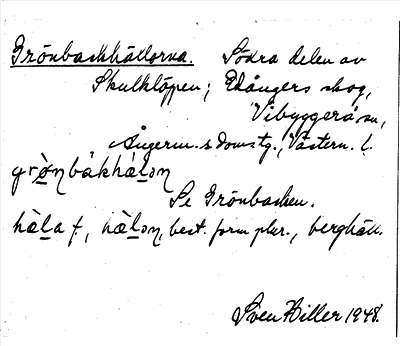 Grönbackhällorna. Södra delen av
Skulklöppen; Edångers skog,
Vibyggerå sn,
Ångerm. s domstg., Västern. l.
grö̀nbákhálən
Se Grönbacken.
hàla f., hàlən, best. form plur., berghäll.
Sven Hiller 1948.